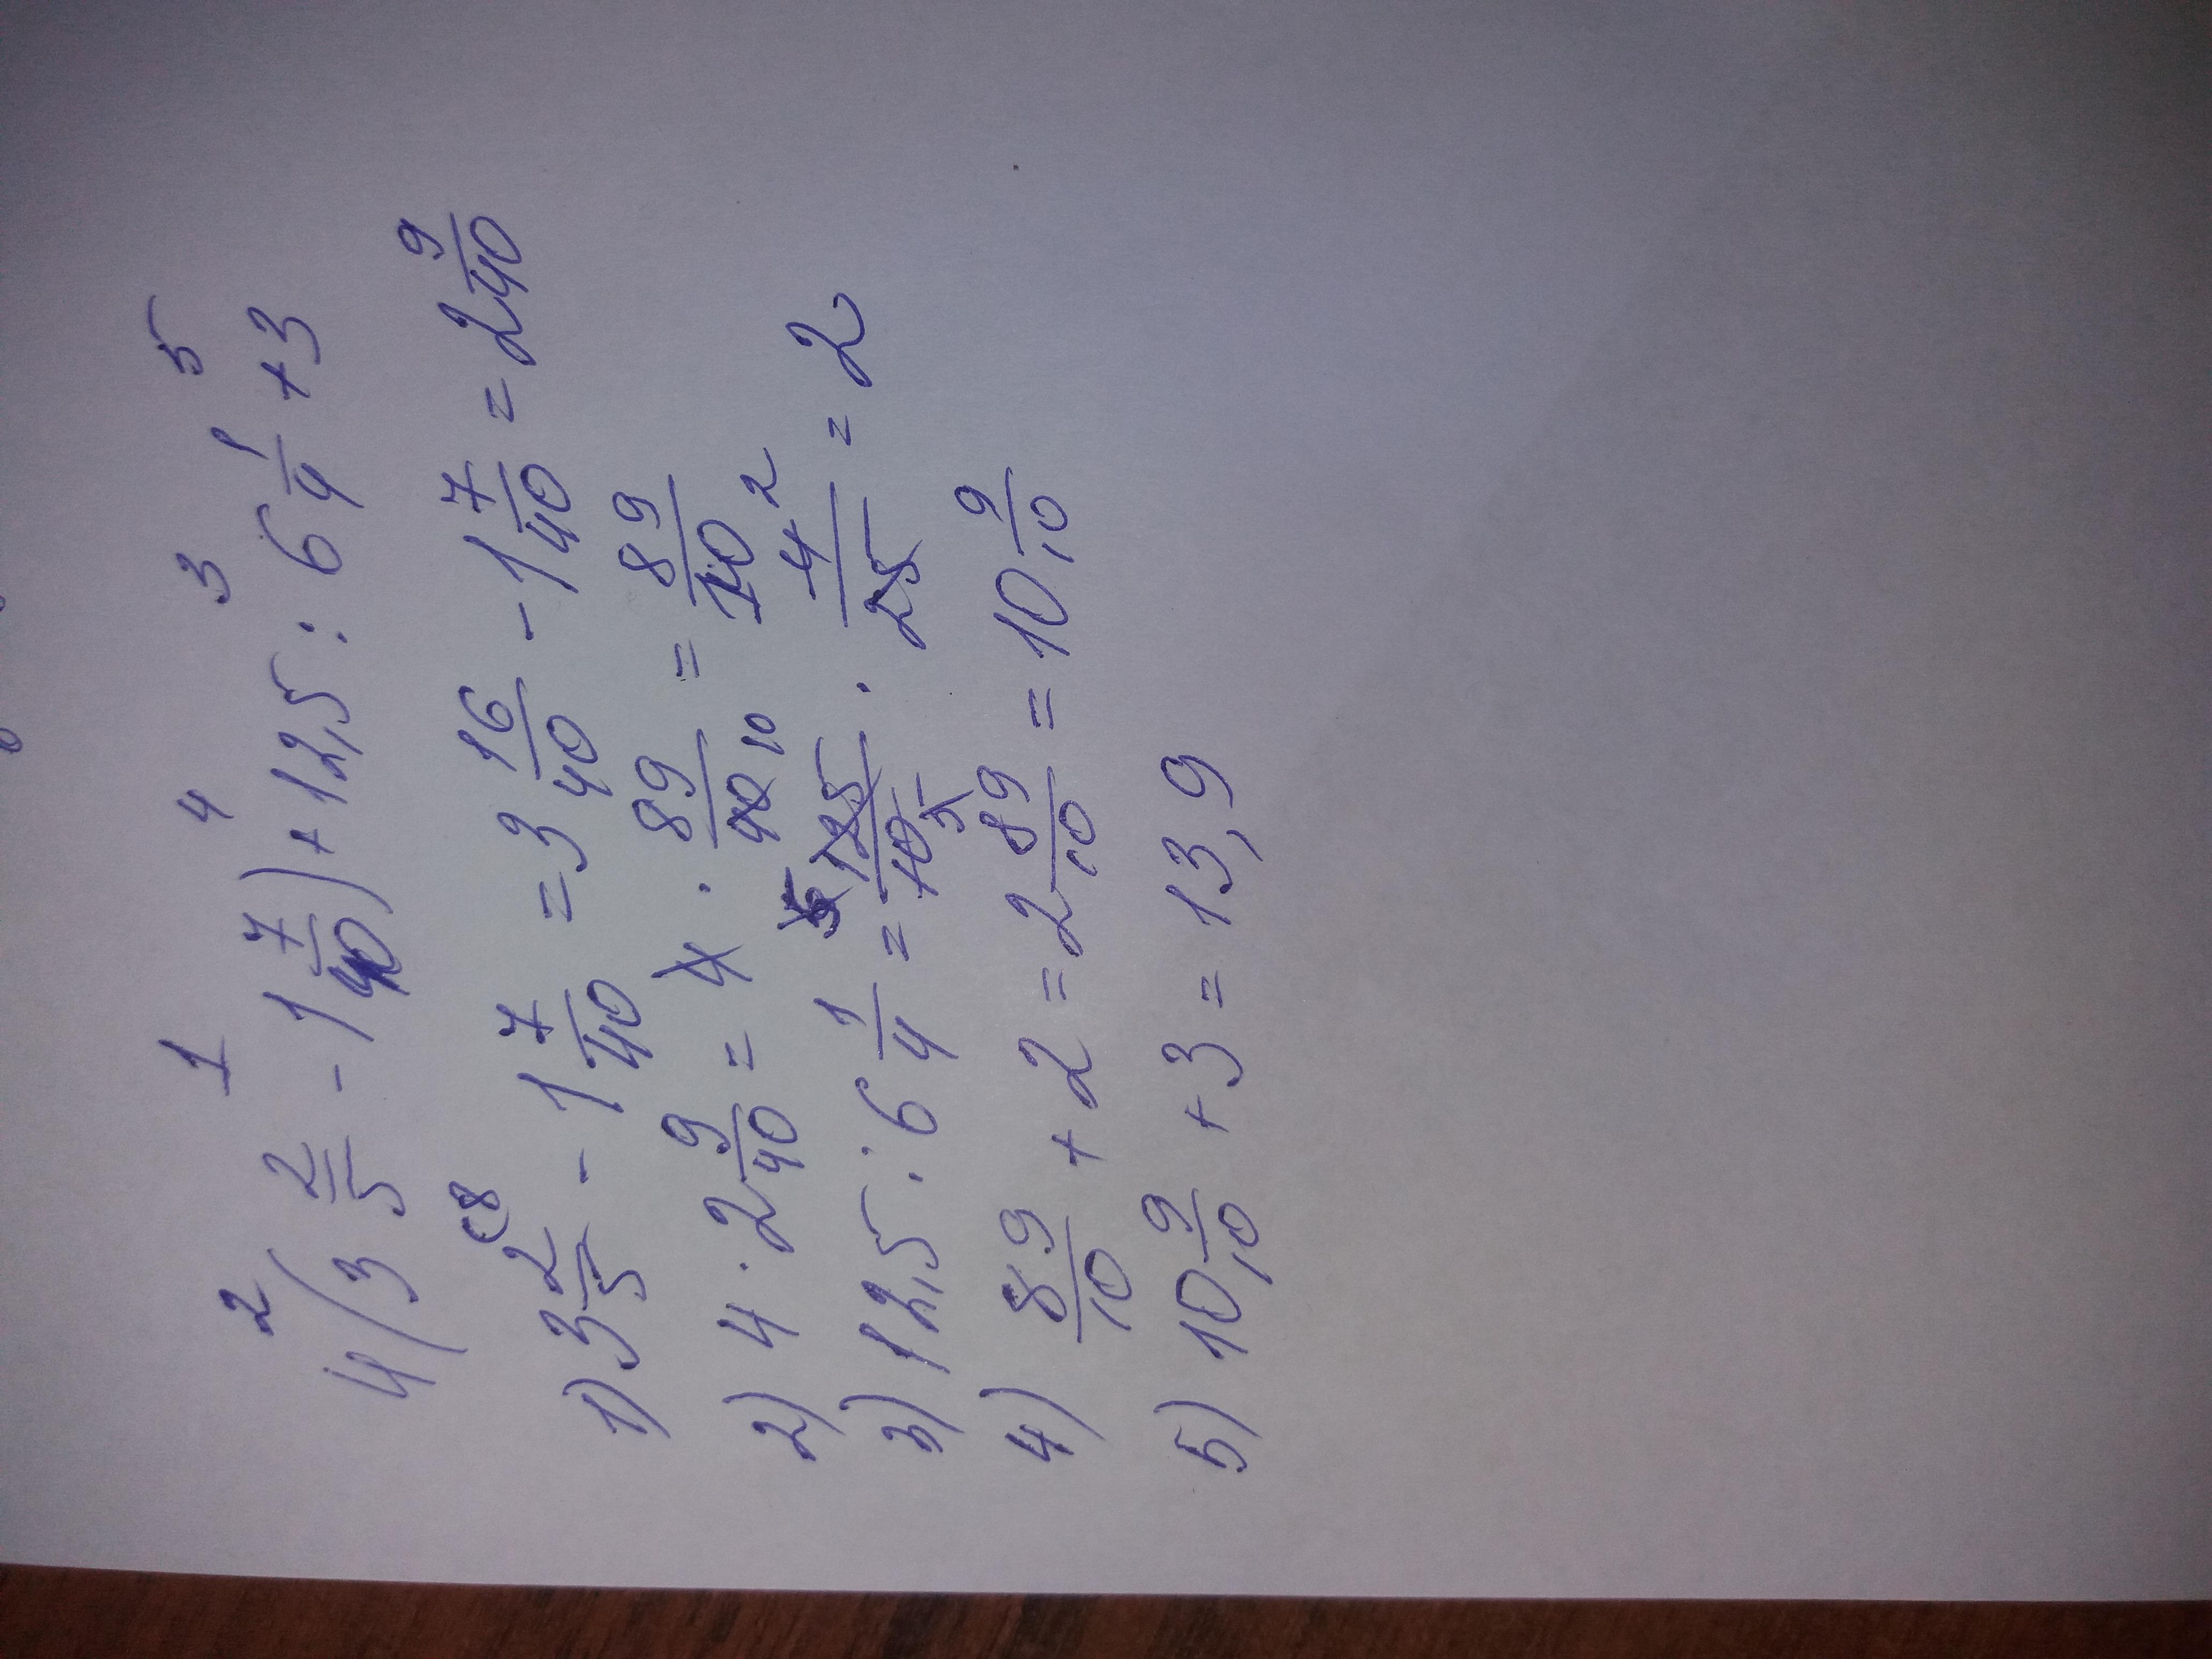 2 1 4 3 5
4(3 2/5 - 1 7/40) + 12,5 : 6 1/4 + 3
1) 3 2/5 (8 - 1 7/40 = 3 16/40 - 1 7/40 = 2 9/40
2) 4 · 2 9/40 = 4 · 89/40 10 = 89/10
3) 12,5 : 6 1/4 = 125/10 5 · 4 2/25 = 2
4) 89/10 + 2 = 2 89/10 = 10 9/10
5) 10 9/10 + 3 = 13,9